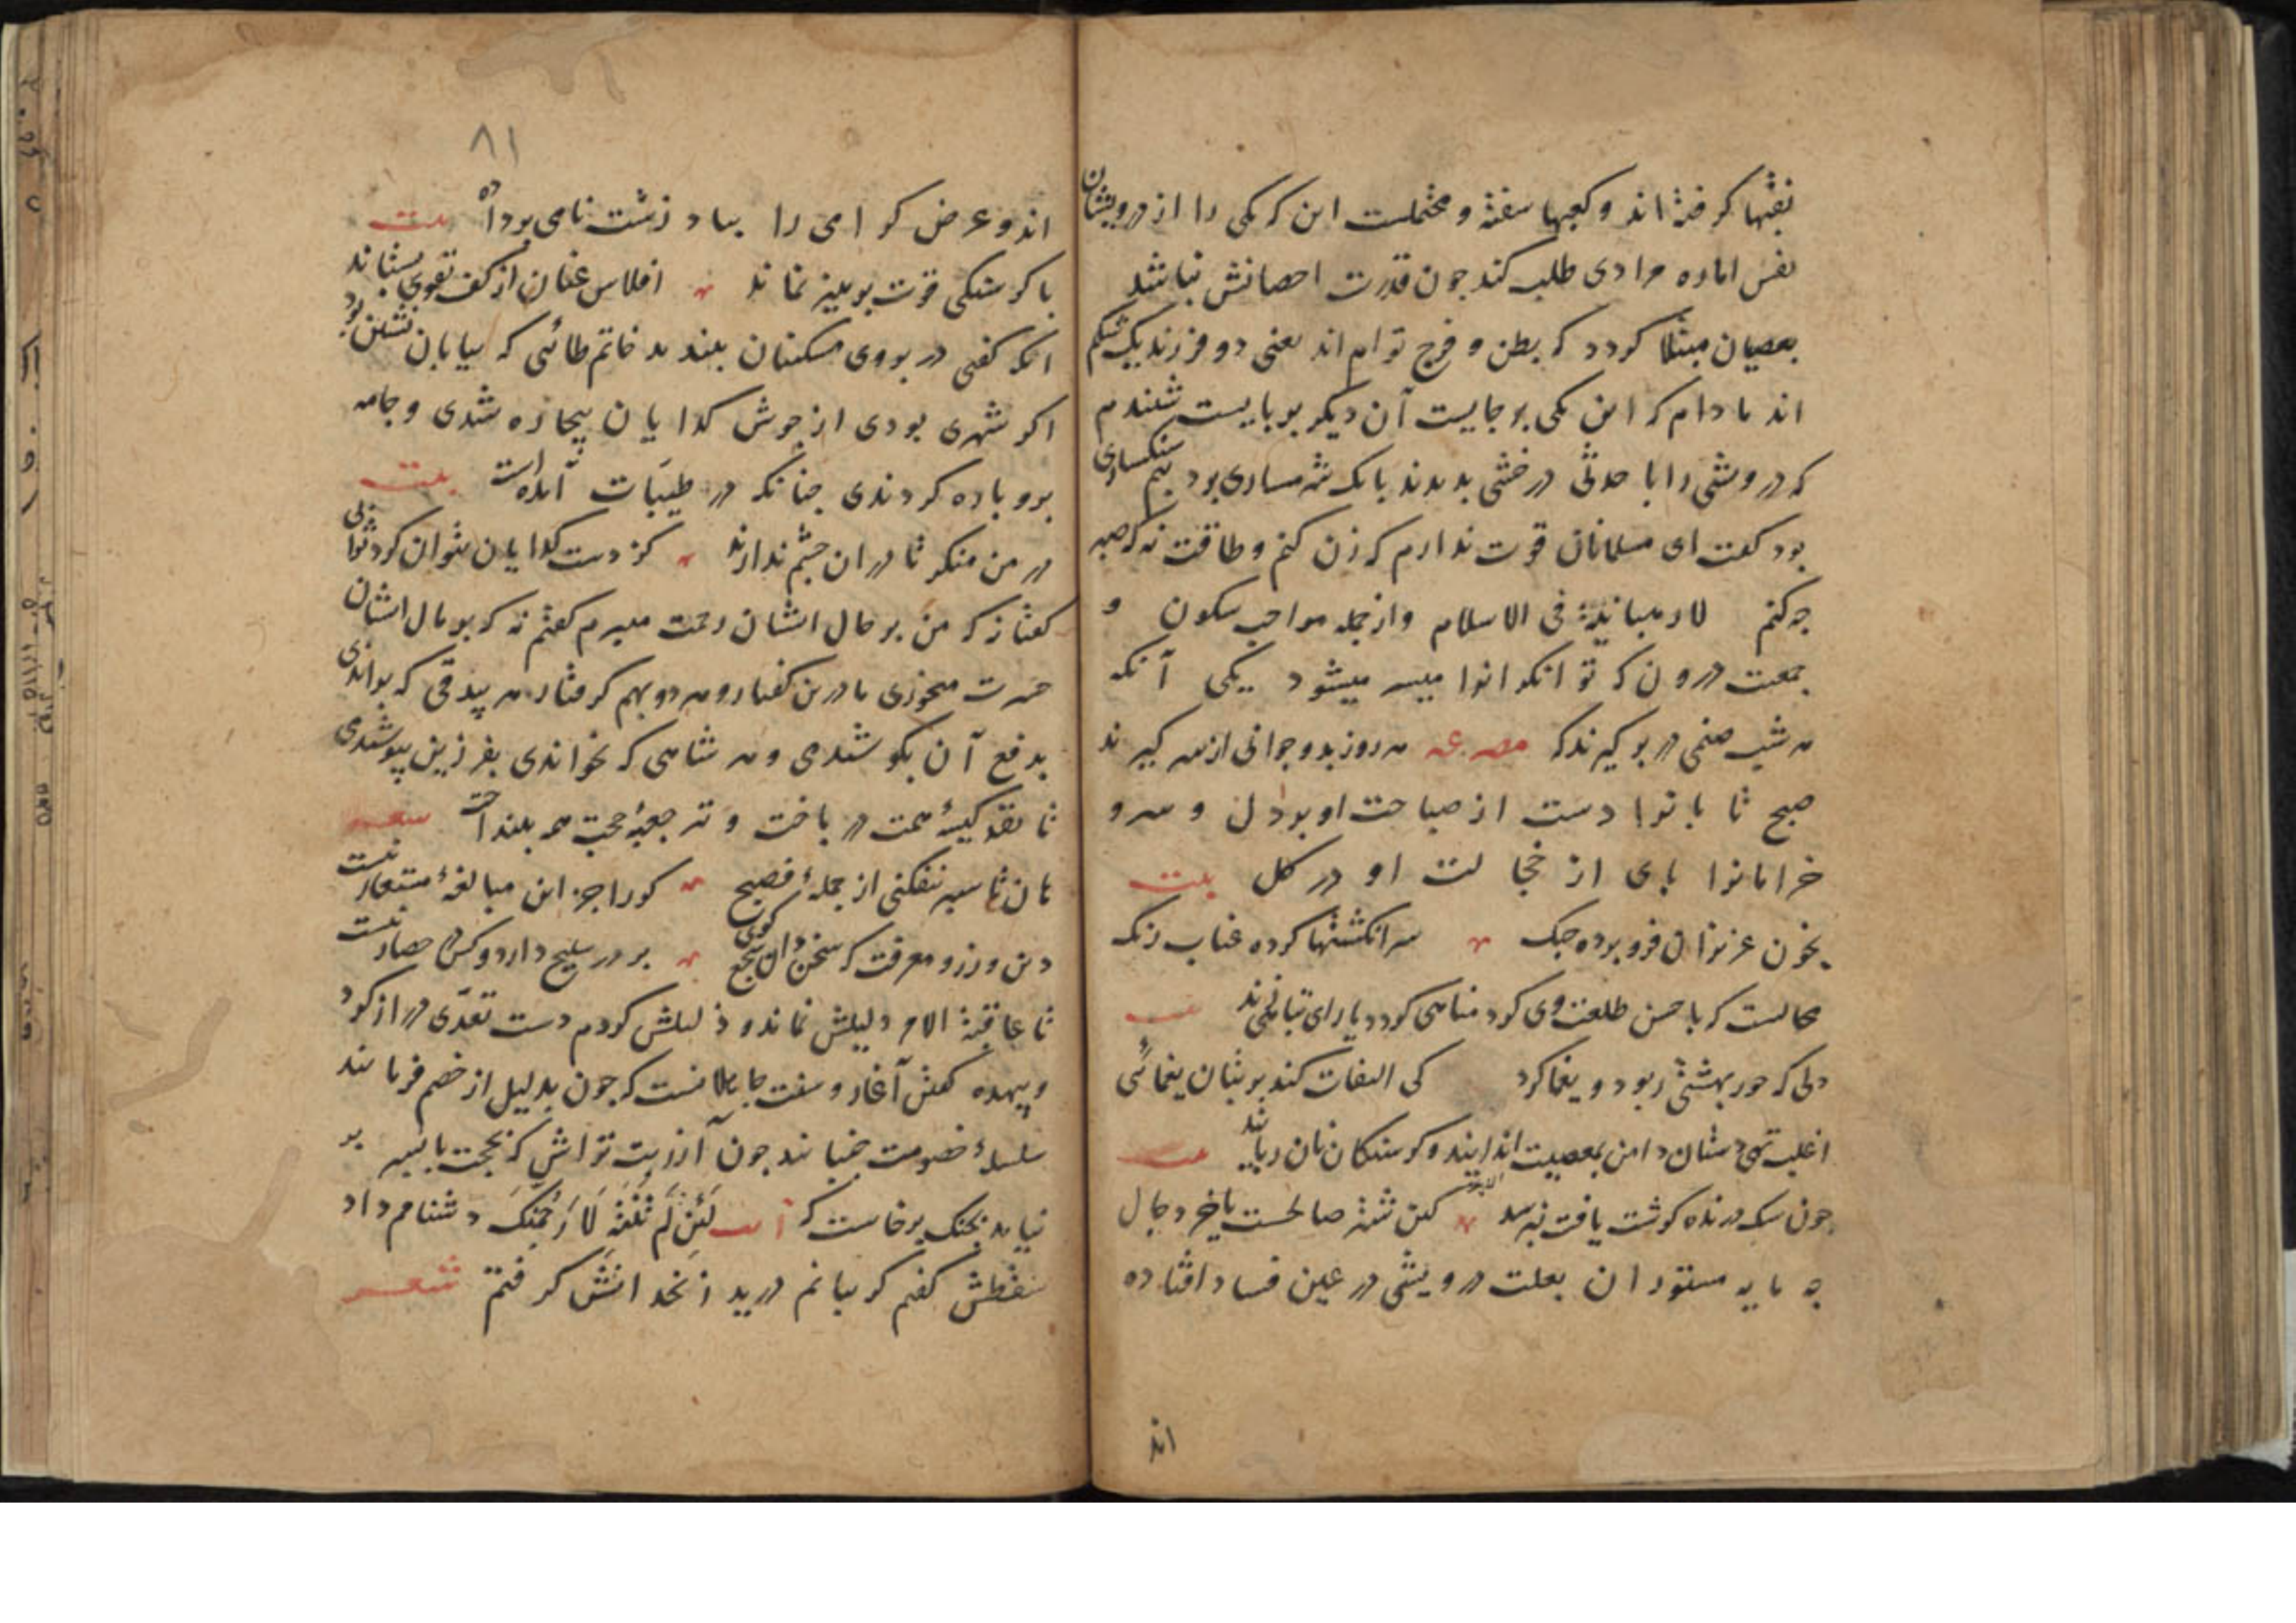 نقبها کرفته اند و کعبها سفته و محتملست این که یکی را از درویشان
نفس اماره مرادی طلب کند چون قدرت احصانش نباشد
بعصیان مبتلا کردد که بطن و فرج توام اند یعنی دو فرزند یک شکم
اند مادام که این یکی بر جایست آن دیکر بر پایست شنیدم
که درویشی را با حدثی در خبثی بدیدند با آنک شرمساری برد بیم سنکساری
بود کفت ای مسلمانان قوت ندارم که زن کنم و طاقت نه که صبر
چه کنم لا رهبانیة فی الاسلام و از جمله مواجب سکون و
جمعیت درون که توانکرانرا میسر میشود یکی آنکه
هر شب صنمی در بر کیرند که مصرعه هر روز بدو جوانی از سر کیرند
صبح تابانرا دست از صباحت او بر دل و سرو
خرامانرا پای از خجالت او در کل بیت
بخون عزیزان فرو برده چنک سر انکشتها کرده عناب رنک
محالست که با حسن طلعت وی کرد مناهی کردد یا رای تباهی زند بیت
دلی که حور بهشتی ربود و یغما کرد کی التفات کند بر بتان یغمائی
اغلب تهی دستان دامن بمعصیت آلایند و کرسنکان نان ربایند بیت
چون سک درنده کوشت یافت نپرسد کین شتر صالحست یا خر دجال
چه مایه مستوران بعلت درویشی در عین فساد افتاده
اند
۸۱
اند و عرض کرامی را بباد زشت نامی برداده بیت
با کرسنکی قوت پرهیز نماند افلاس عنان از کف تقوی بستاند
انکه کفتی در بروی مسکینان ببندند حاتم طائی که بیابان نشین بود
اکر شهری بودی از جوش کدایان بیچاره شدی و جامه
برو پاره کردندی چنانکه در طیبات آمده است بیت
در من منکر تا دکران چشم ندارند کز دست کدایان نتوان کرد ثوابی
کفتا نه که من بر حال ایشان رحمت میبرم کفتم نه که بر مال ایشان
حسرت میخوری ما درین کفتار و هر دو بهم کرفتار هر بیدقی که براندی
بدفع آن بکوشیدمی و هر شاهی که بخواندی بفرزین بپوشیدمی
تا نقد کیسهٔ همت در باخت و تیر جعبهٔ حجت همه بینداخت شعر
هان تا سپر نفکنی از حملهٔ فصیح کورا جز این مبالغهٔ مستعار نیست
دین ورز و معرفت که سخن دان سجع کوی بر در سلیح دارد و کس در حصار نیست
تا عاقبة الامر دلیلش نماند و ذلیلش کردم دست تعدی دراز کرد
و بیهده کفتن آغاز و سنت جاهلانست که چون بدلیل از خصم فرو مانند
سلسلهٔ خصومت جنبانند چون آزر بت تراش که بحجت با پسر بر
نیامد بجنک برخاست که آیت لَئِن لَم تَنْتَهِ لَاَرْجُمَنَّکَ دشنامم داد
سقطش کفتم کریبانم درید زنخدانش کرفتم شعر